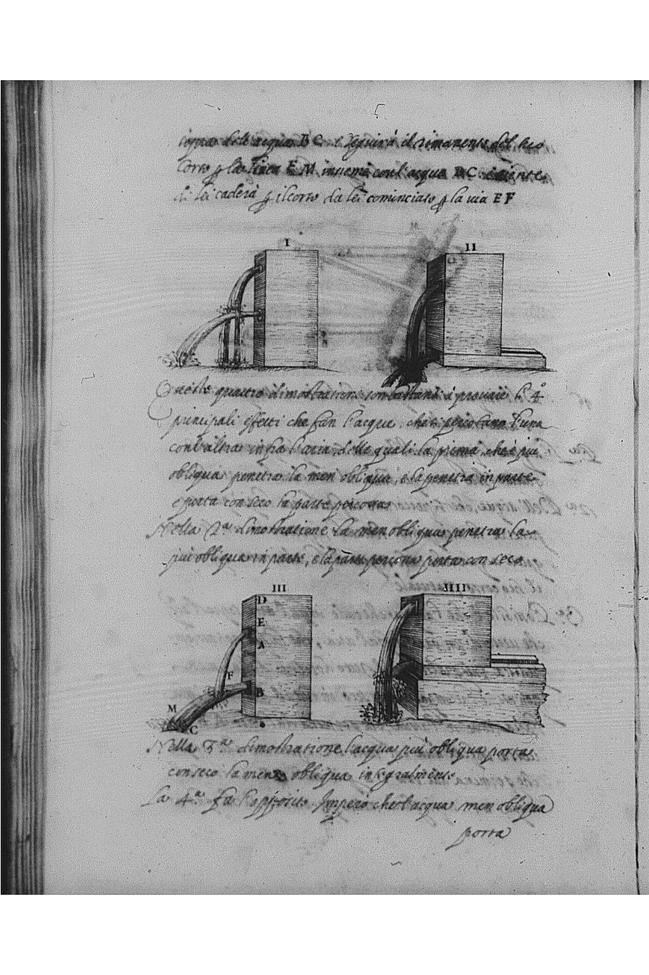 sopra dell'acqua BC. e seguirà il rimanente del suo
Corso p la linea EM insieme con l'acqua BC e niente
di lei caderà p il corso da lei cominciato p la via EF
I
II
Queste quattro dimostrationi son bastanti à provare li 4º
principali effetti che fan l'acqua, che si percotano l'una
con l'altra infra l'aria, delle quali la prima che è più
obliqua penetra la men obliqua, e la penetra in parte
e porta con seco la parte percossa
Nella 2ª dimostratione la men obliqua penetra la
più obliqua in parte, e la parte percossa porta con seco
III
IIII
D
E
A
F
B
M
C
Nella 3ª dimostratione l'acqua più obliqua porta
con seco la meno obliqua integralmente
La 4ª fa l'opposito Imperò che l'acqua men obliqua
porta